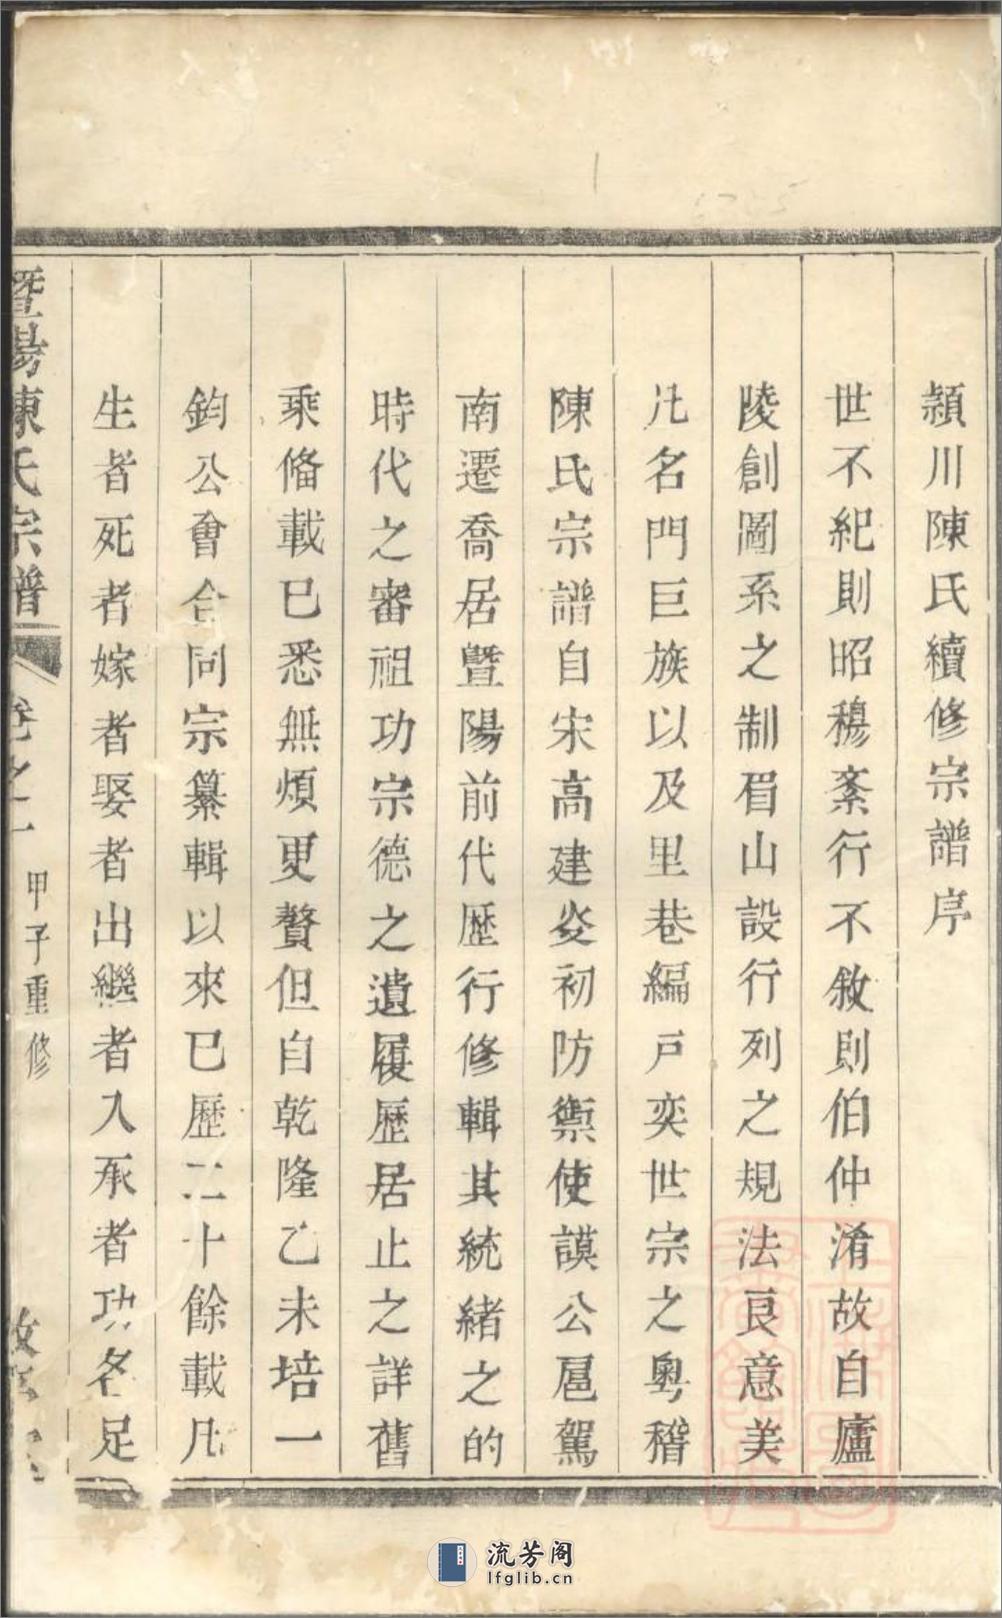 潁川陳氏續修宗譜序
世不紀則昭穆紊行不敘則伯仲淆故自廬
陵創圖系之制眉山設行列之規法良意美
凡名門巨族以及里巷編戶奕世宗之粵稽
陳氏宗譜自宋高建炎初防禦使謨公扈駕
南遷喬居暨陽前代歷行修輯其統緒之的
時代之審祖功宗德之遺履歷居止之詳舊
乘俻載已悉無煩更贅但自乾隆乙未培一
鈞公會合同宗纂輯以來已歷二十餘載凡
生者死者嫁者娶者出繼者入承者功名足
暨陽陳氏宗譜 卷之一 甲子重修
流芳阁
lfglib.cn